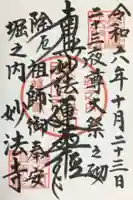 令和六年十月二十三日
二十三夜尊大祭之砌
南無妙法蓮華経
除厄祖師御奉安
堀之内 妙法寺